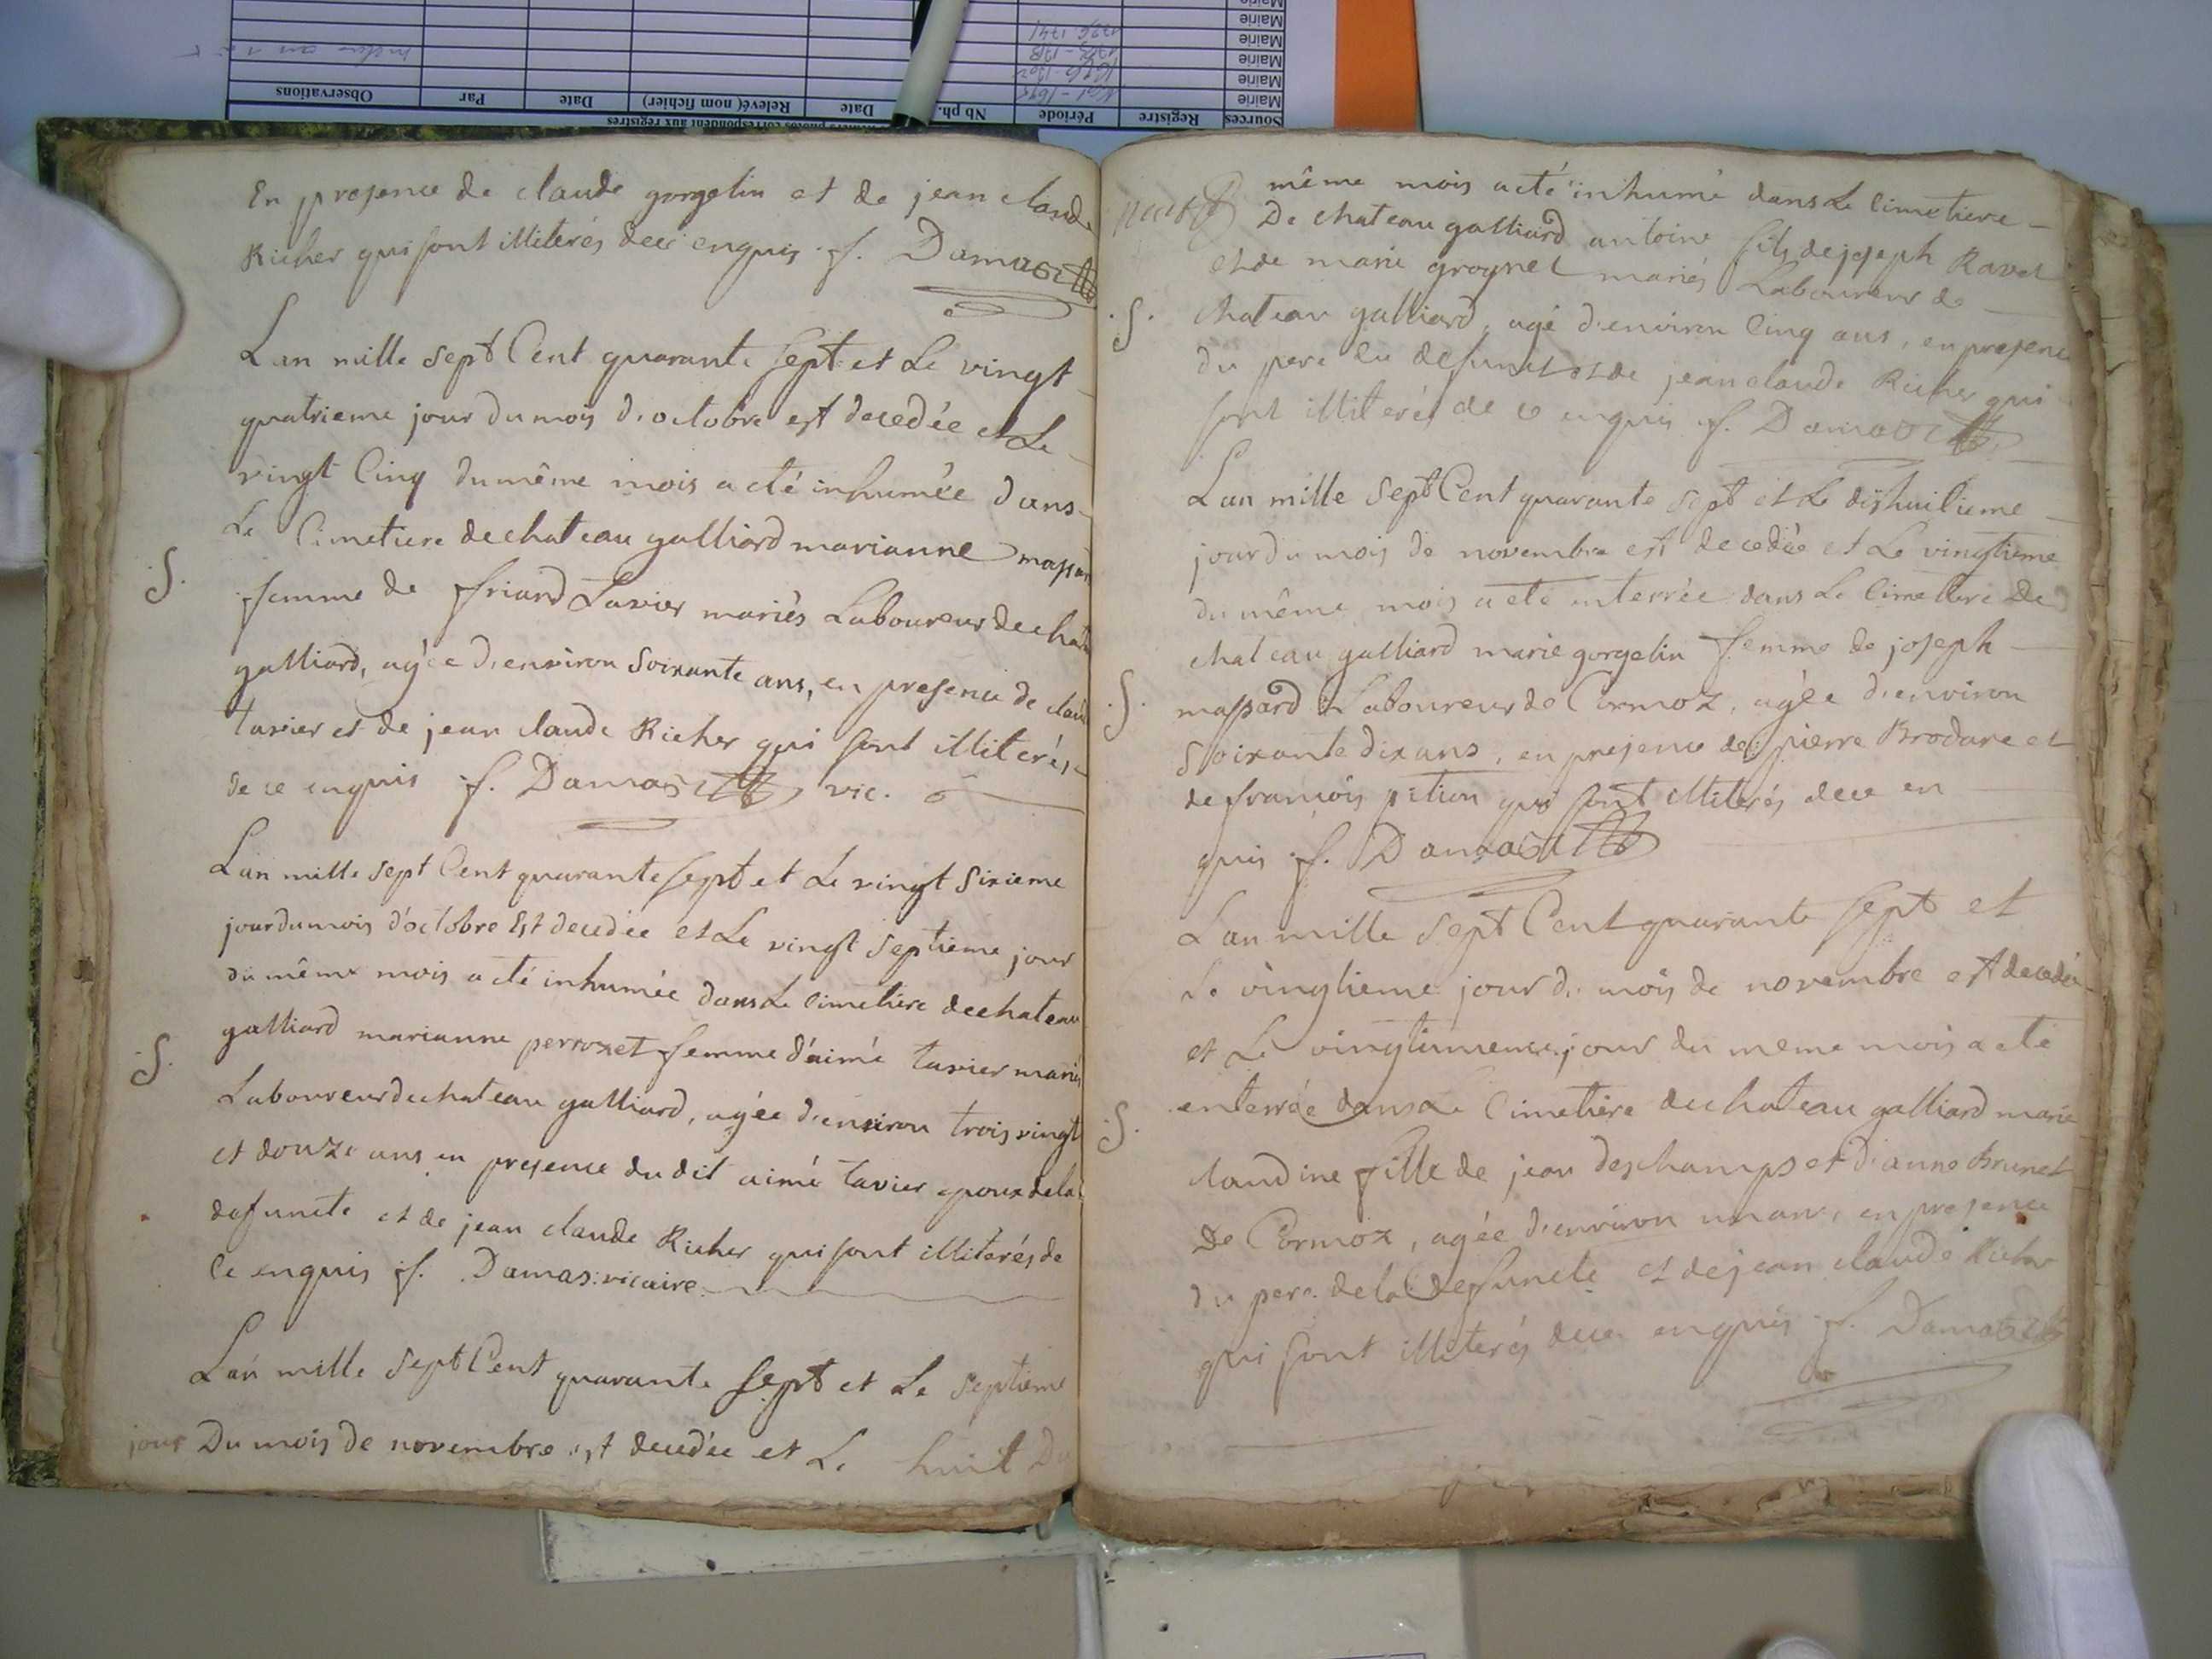 Sources Registre Période Nb ph. Date Relevé( nom fichier) Date Par Observations
Mairie
Mairie
Mairie
Mairie
En presence de claude gorgelin et de jean claude
Richer qui sont illiterés de ce enquis f. Damas
Lan mille sept Cent quarante sept et Le vingt
quatrieme jour du mois d'octobre est decedée et Le
vingt Cinq du même mois a eté inhumée dans
Le Cimetiere de chateau galliard marianne
S. femme de friard Tavier mariés Laboureur de
galliard, agée d'environ Soixante ans, en presence de
tavier et de jean claude Richer qui sont illiterés
de ce enquis f. Damas vic.
Lan mille sept Cent quarante sept et Le vingt Sixieme
jour du mois d'octobre Est decedée et Le vingt septieme jour
du même mois a eté inhumée dans Le Cimetiere de chateau
galliard marianne perroxet femme d'aimé tavier mariés
S. Laboureur de chateau galliard, agée d'environ trois vingt
et douze ans en presence du dit aimé tavier epoux de la
defuncte et de jean claude Richer qui sont illiterés de
Ce enquis f. Damas vicaire
Lan mille sept Cent quarante sept et Le septieme
jour Du mois de novembre est decedée et Le huit Du
même mois a eté inhumé dans Le Cimetiere
De chateau galliard antoine fils de joseph Ravet
et de marie grognet mariés Laboureur de
S. chateau galliard, agé d'environ Cinq ans, en presence
du pere du defunct et de jean claude Richer qui
sont illiterés de ce enquis f. Damas
Lan mille sept Cent quarante sept et Le dixhuitieme
jour du mois de novembre est decedée et Le vingtieme
du même mois a eté enterrée dans Le Cimettere De
chateau galliard marie gorgelin femme de joseph
S. massard Laboureur de Cormoz, agée d'environ
Soixante dix ans, en presence de pierre Brodare et
de françois pition qui sont illiterés de ce en
quis f. Damas
Lan mille sept Cent quarante sept et
Le vingtieme jour du mois de novembre est decedée
et Le jour du meme mois a eté
S. enterrée dans Le Cimetiere de chateau galliard marie
claudine fille de jean deschamps et d'anne Brunet
De Cormox, agée d'environ un an, en presence
du pere de la defuncte et de jean claude Richer
qui sont illiterés de ce enquis f. Damas